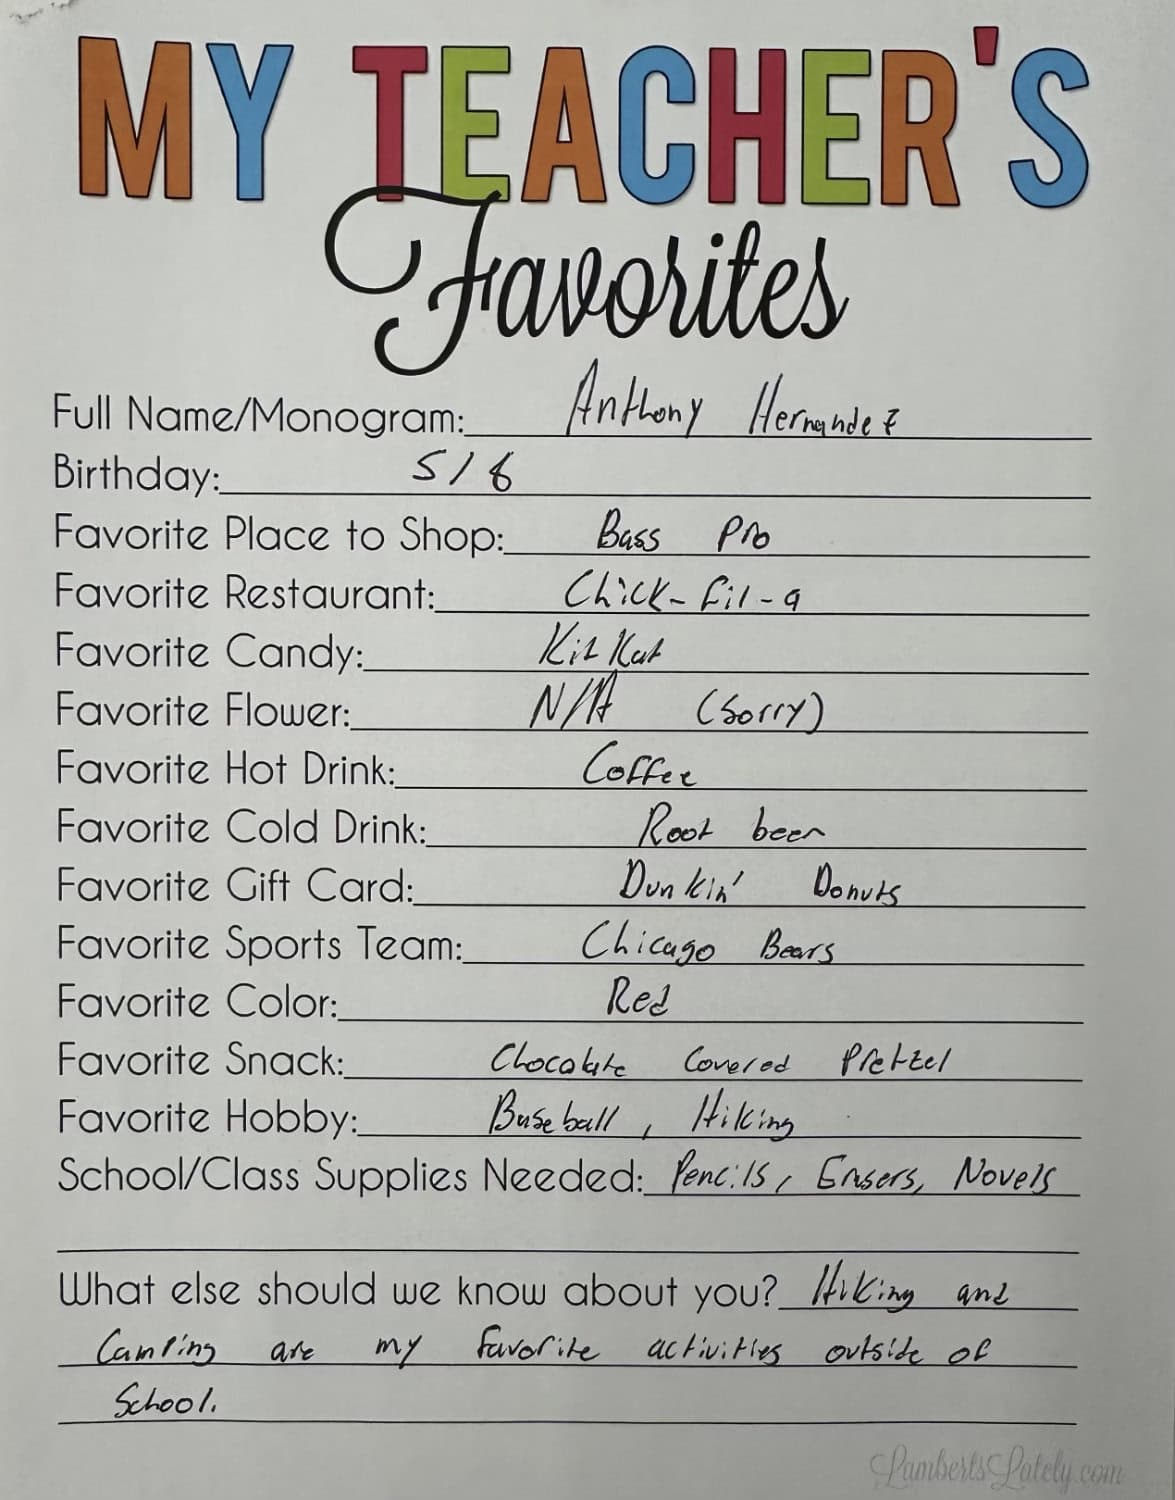 MY TEACHER'S
Favorites
Full Name/Monogram: Anthony Hernandez
Birthday: 5/8
Favorite Place to Shop: Bass Pro
Favorite Restaurant: Chick-fil-a
Favorite Candy: Kit Kat
Favorite Flower: N/A (Sorry)
Favorite Hot Drink: Coffee
Favorite Cold Drink: Root beer
Favorite Gift Card: Dunkin' Donuts
Favorite Sports Team: Chicago Bears
Favorite Color: Red
Favorite Snack: Chocolate Covered Pretzel
Favorite Hobby: Baseball, Hiking
School/Class Supplies Needed: Pencils, Erasers, Novels
What else should we know about you? Hiking and
Camping are my favorite activities outside of
School.
LambertsLately.com